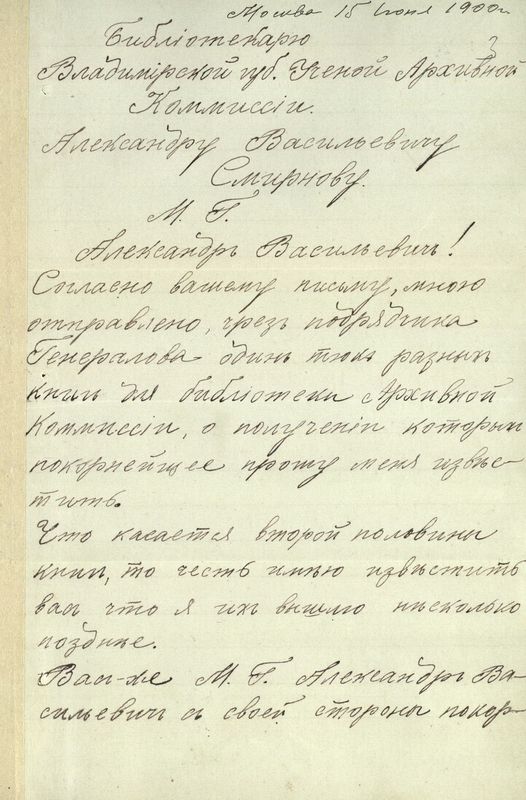 Москва 15 Іюня 1900 г.
3
Библіотекарю
Владимірской губ. Ученой Архивной
Коммиссіи.
Александру Васильевичу
Смирнову.
М. Г.
Александръ Васильевичъ!
Согласно вашему письму, мною
отправлено, чрезъ подрядчика
Генералова одинъ тюкъ разныхъ
книгъ для библіотеки Архивной
Коммиссіи, о полученіи которыхъ
покорнейшее прошу меня извѣс-
тить.
Что касается второй половины
книгъ, то честь имѣю извѣстить
васъ что я ихъ вышлю нѣсколько
позднее.
Васъ-же М. Г. Александръ Ва-
сильевичъ съ своей стороны покор-